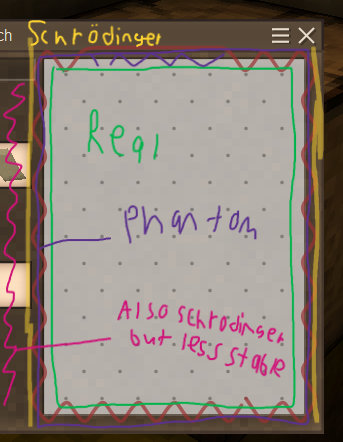 ch
Schrödinger
Real
Phantom
Also schrödinger
but less stable